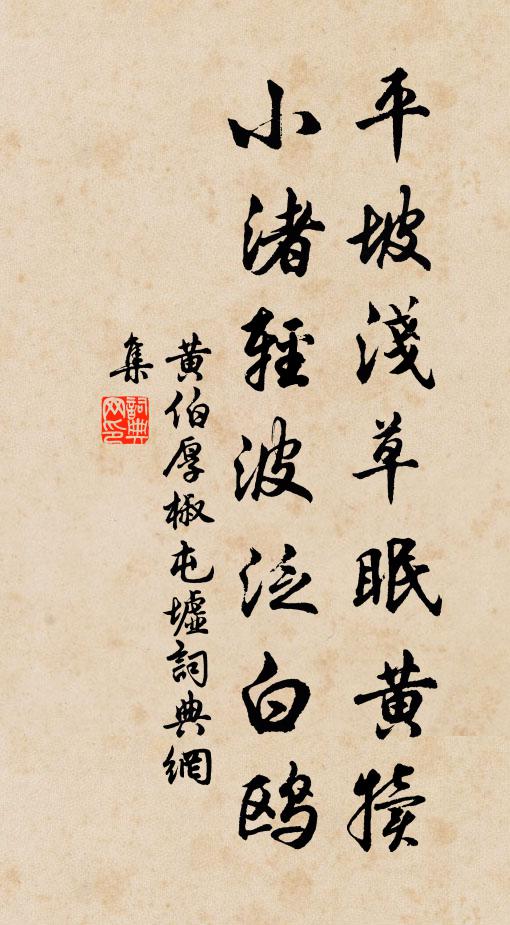 平坡淺草眠黃犢
小渚輕波泛白鷗
黃伯厚椒屯墟詞典網
集
詞典
网印